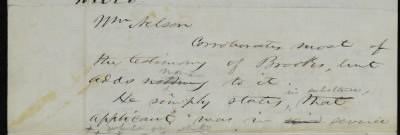 Wm Nelson
Corroborates most of
the testimony of Brooks, but
adds nothing to it.
in substance,
He simply states, that
applicant was in service